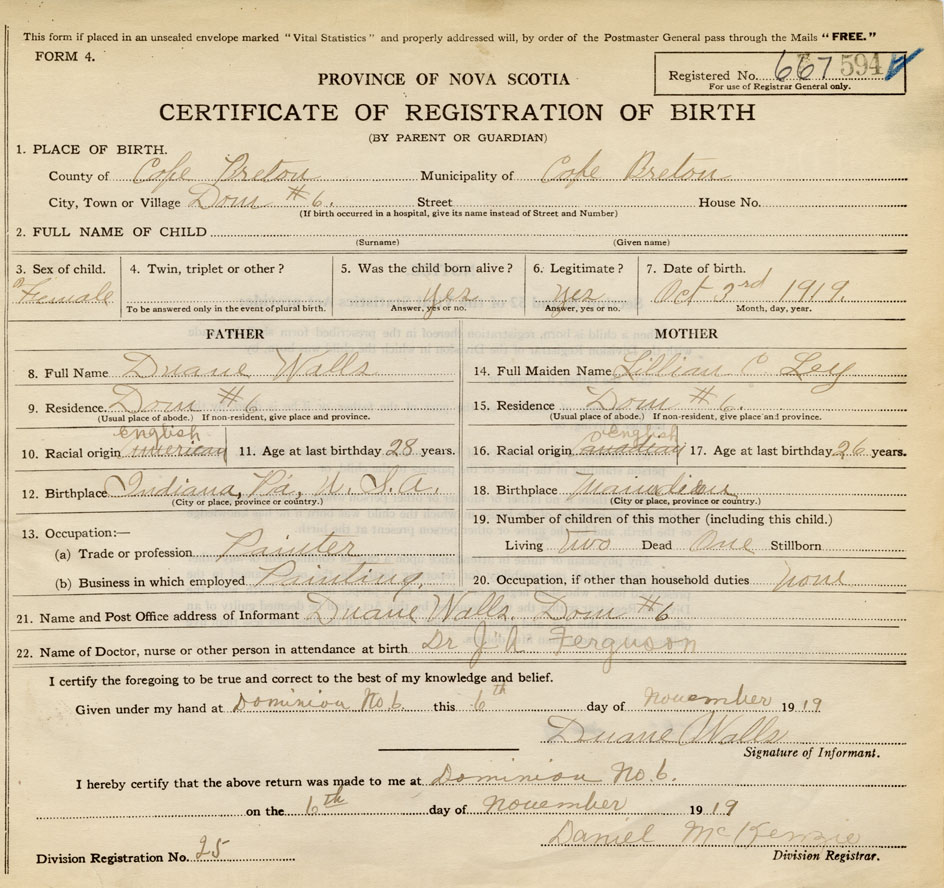 This form if placed in an unsealed envelope marked "Vital Statistics" and properly addressed will, by order of the Postmaster General pass through the Mails "FREE."
FORM 4.
Registered No. 667 594
For use of Registrar General only.
PROVINCE OF NOVA SCOTIA
CERTIFICATE OF REGISTRATION OF BIRTH
(BY PARENT OR GUARDIAN)
1. PLACE OF BIRTH.
County of Cape Breton Municipality of Cape Breton
City, Town or Village Dom #6. Street House No.
(If birth occurred in a hospital, give its name instead of Street and Number)
2. FULL NAME OF CHILD
(Surname) (Given name)
3. Sex of child. 4. Twin, triplet or other? 5. Was the child born alive? 6. Legitimate? 7. Date of birth.
Female yes yes Oct 3rd 1919.
To be answered only in the event of plural birth. Answer, yes or no. Answer, yes or no. Month, day, year.
FATHER MOTHER
8. Full Name Duane Walls 14. Full Maiden Name Lillian C Ley
9. Residence Dom #6 15. Residence Dom #6.
(Usual place of abode.) If non-resident, give place and province. (Usual place of abode.) If non-resident, give place and province.
english english
10. Racial origin american 11. Age at last birthday 28 years. 16. Racial origin 17. Age at last birthday 26 years.
12. Birthplace Indiana, Pa, U. S. A. 18. Birthplace
(City or place, province or country.) (City or place, province or country.)
13. Occupation:— 19. Number of children of this mother (including this child.)
(a) Trade or profession Painter Living Two Dead One Stillborn
(b) Business in which employed Painting. 20. Occupation, if other than household duties none
21. Name and Post Office address of Informant Duane Walls. Dom #6
22. Name of Doctor, nurse or other person in attendance at birth Dr J A Ferguson
I certify the foregoing to be true and correct to the best of my knowledge and belief.
Given under my hand at Dominion No.6. this 6th day of November 1919.
Duane Walls
Signature of Informant.
I hereby certify that the above return was made to me at Dominion No.6.
on the 6th day of November 1919
Daniel McKenzie
Division Registration No. 25 Division Registrar.